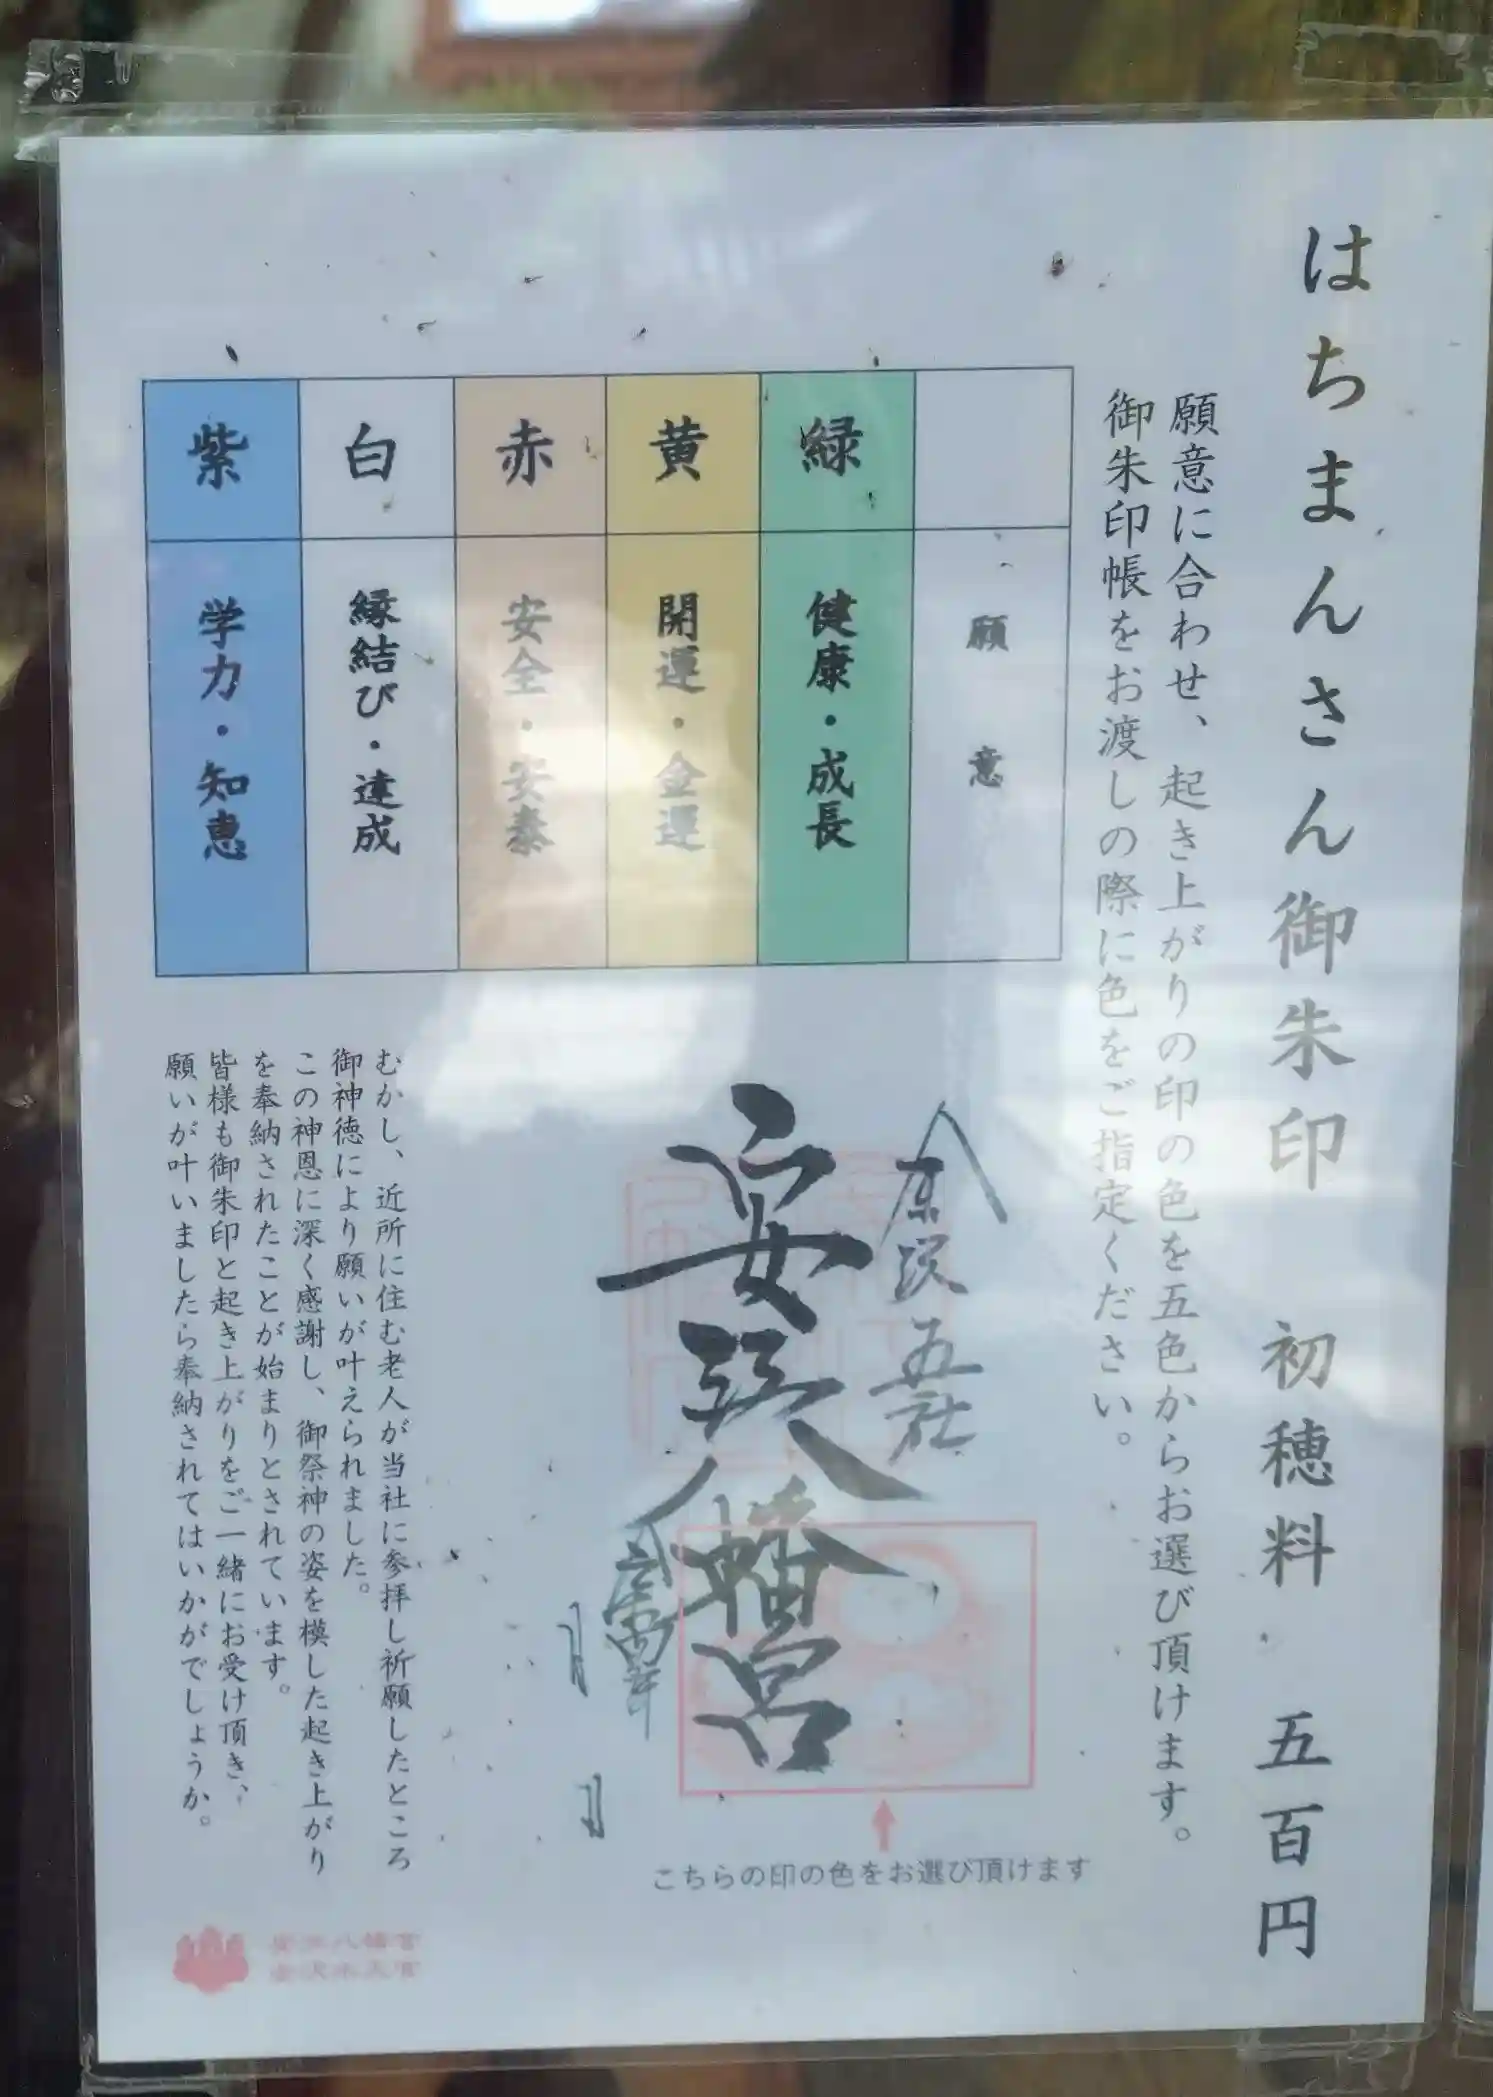 はちまんさん御朱印 初穂料 五百円
願意に合わせ、起き上がりの印の色を五色からお選び頂けます。
御朱印帳をお渡しの際に色をご指定ください。
願意
緑
健康・成長
黄
開運・金運
赤
安全・安泰
白
縁結び・達成
紫
学力・知恵
金沢五社
安江八幡宮
月
日
こちらの印の色をお選び頂けます
むかし、近所に住む老人が当社に参拝し祈願したところ
御神徳により願いが叶えられました。
この神恩に深く感謝し、御祭神の姿を模した起き上がり
を奉納されたことが始まりとされています。
皆様も御朱印と起き上がりをご一緒にお受け頂き、
願いが叶いましたら奉納されてはいかがでしょうか。
安江八幡宮
金沢水天宮